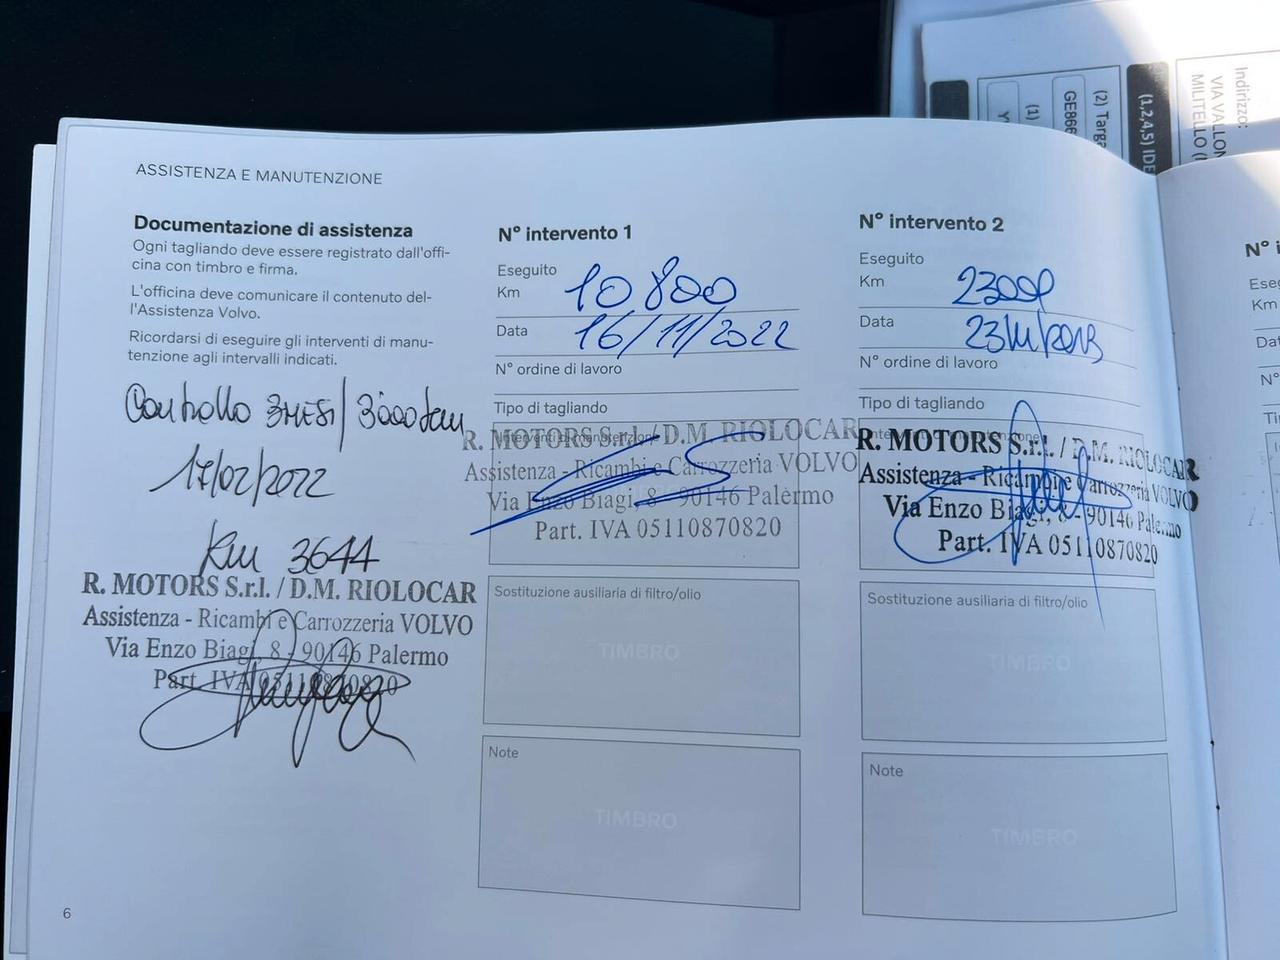 ASSISTENZA E MANUTENZIONE
Documentazione di assistenza
Ogni tagliando deve essere registrato dall'offi-
cina con timbro e firma.
L'officina deve comunicare il contenuto del-
l'Assistenza Volvo.
Ricordarsi di eseguire gli interventi di manu-
tenzione agli intervalli indicati.
Controllo 3 MESI/3000 km
17/02/2022
Km 3644
R. MOTORS S.r.l. / D.M. RIOLOCAR
Assistenza - Ricambi e Carrozzeria VOLVO
Via Enzo Biagi, 8 - 90146 Palermo
Part. IVA 05110870820
6
N° intervento 1
Eseguito
Km 10800
Data 16/11/2022
N° ordine di lavoro
Tipo di tagliando
Interventi di manutenzione
R. MOTORS S.r.l. / D.M. RIOLOCAR
Assistenza - Ricambi e Carrozzeria VOLVO
Via Enzo Biagi, 8 - 90146 Palermo
Part. IVA 05110870820
Sostituzione ausiliaria di filtro/olio
TIMBRO
Note
TIMBRO
N° intervento 2
Eseguito
Km 23000
Data
N° ordine di lavoro
Tipo di tagliando
R. MOTORS S.r.l. / D.M. RIOLOCAR
Assistenza - Ricambi e Carrozzeria VOLVO
Via Enzo Biagi, 8 - 90146 Palermo
Part. IVA 05110870820
Sostituzione ausiliaria di filtro/olio
TIMBRO
Note
TIMBRO
N°
Km
N°
Indirizzo:
VIA
MILITELLO
(1,2,4,5)
(2) Targa
GE866
(1)